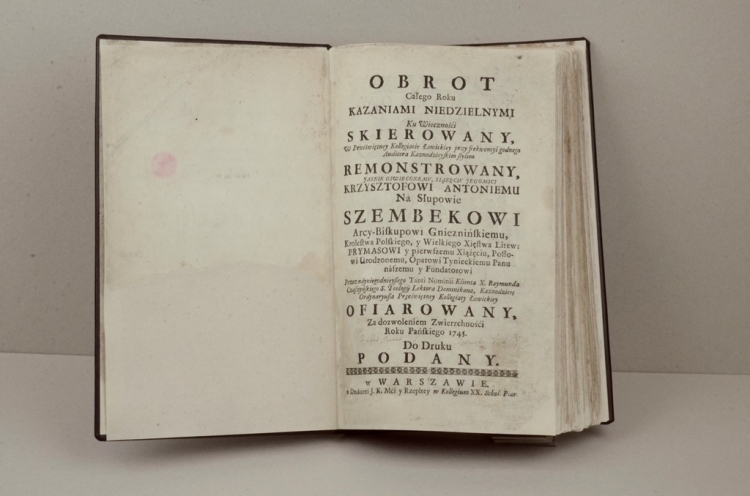 OBROT
Całego Roku
KAZANIAMI NIEDZIELNYMI
Ku Wieczności
SKIEROWANY,
W Przeświętney Kollegiacie Łowickiey przy frekwencyi godnego
Auditora Kaznodzieyskim stylem
REMONSTROWANY,
JASNIE OSWIECONEMU, XIĄŻĘCIU JEGOMCI
KRZYSZTOFOWI ANTONIEMU
Na Słupowie
SZEMBEKOWI
Arcy-Biſkupowi Gnieznińſkiemu,
Krolestwa Polſkiego, y Wielkiego Xięſtwa Litew:
PRYMASOWI y pierwſzemu Xiążęciu,
wi Urodzonemu, Opatowi Tynieckiemu Panu
naſzemu y Fundatorowi
Przez Tanti Nominis Klienta X. Raymunda
S. Teologii Lektora Dominikana, Kaznodzieię
Ordynaryuſza Przeświętney Kollegiaty Łowickiey
OFIAROWANY,
Za dozwoleniem Zwierzchności
Roku Pańſkiego 1745.
Do Druku
PODANY.
w WARSZAWIE,
w Drukarni J. K. Mći y Rzeplitey w Kollegium XX. Schol. Piar.